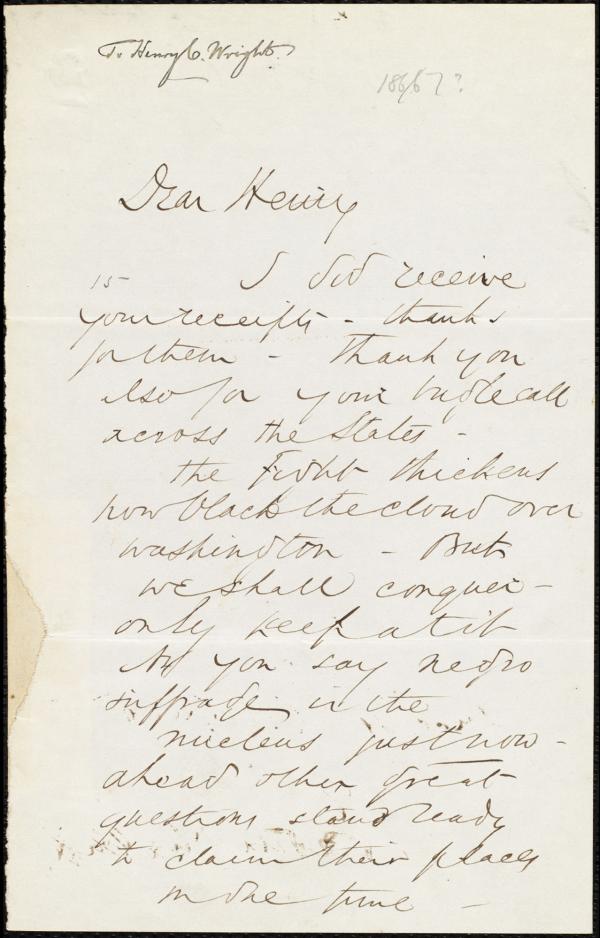 To Henry C. Wright.
1866/7?
Dear Henry
15 I did receive
your receipts - thanks
for them - Thank you
also for your bugle call
across the States -
the Fight thickens
how black the cloud over
Washington - But
we shall conquer -
only keep at it
As you say negro
suffrage is the
nucleus just now -
ahead other great
questions stand ready
to claim their places
in due time -